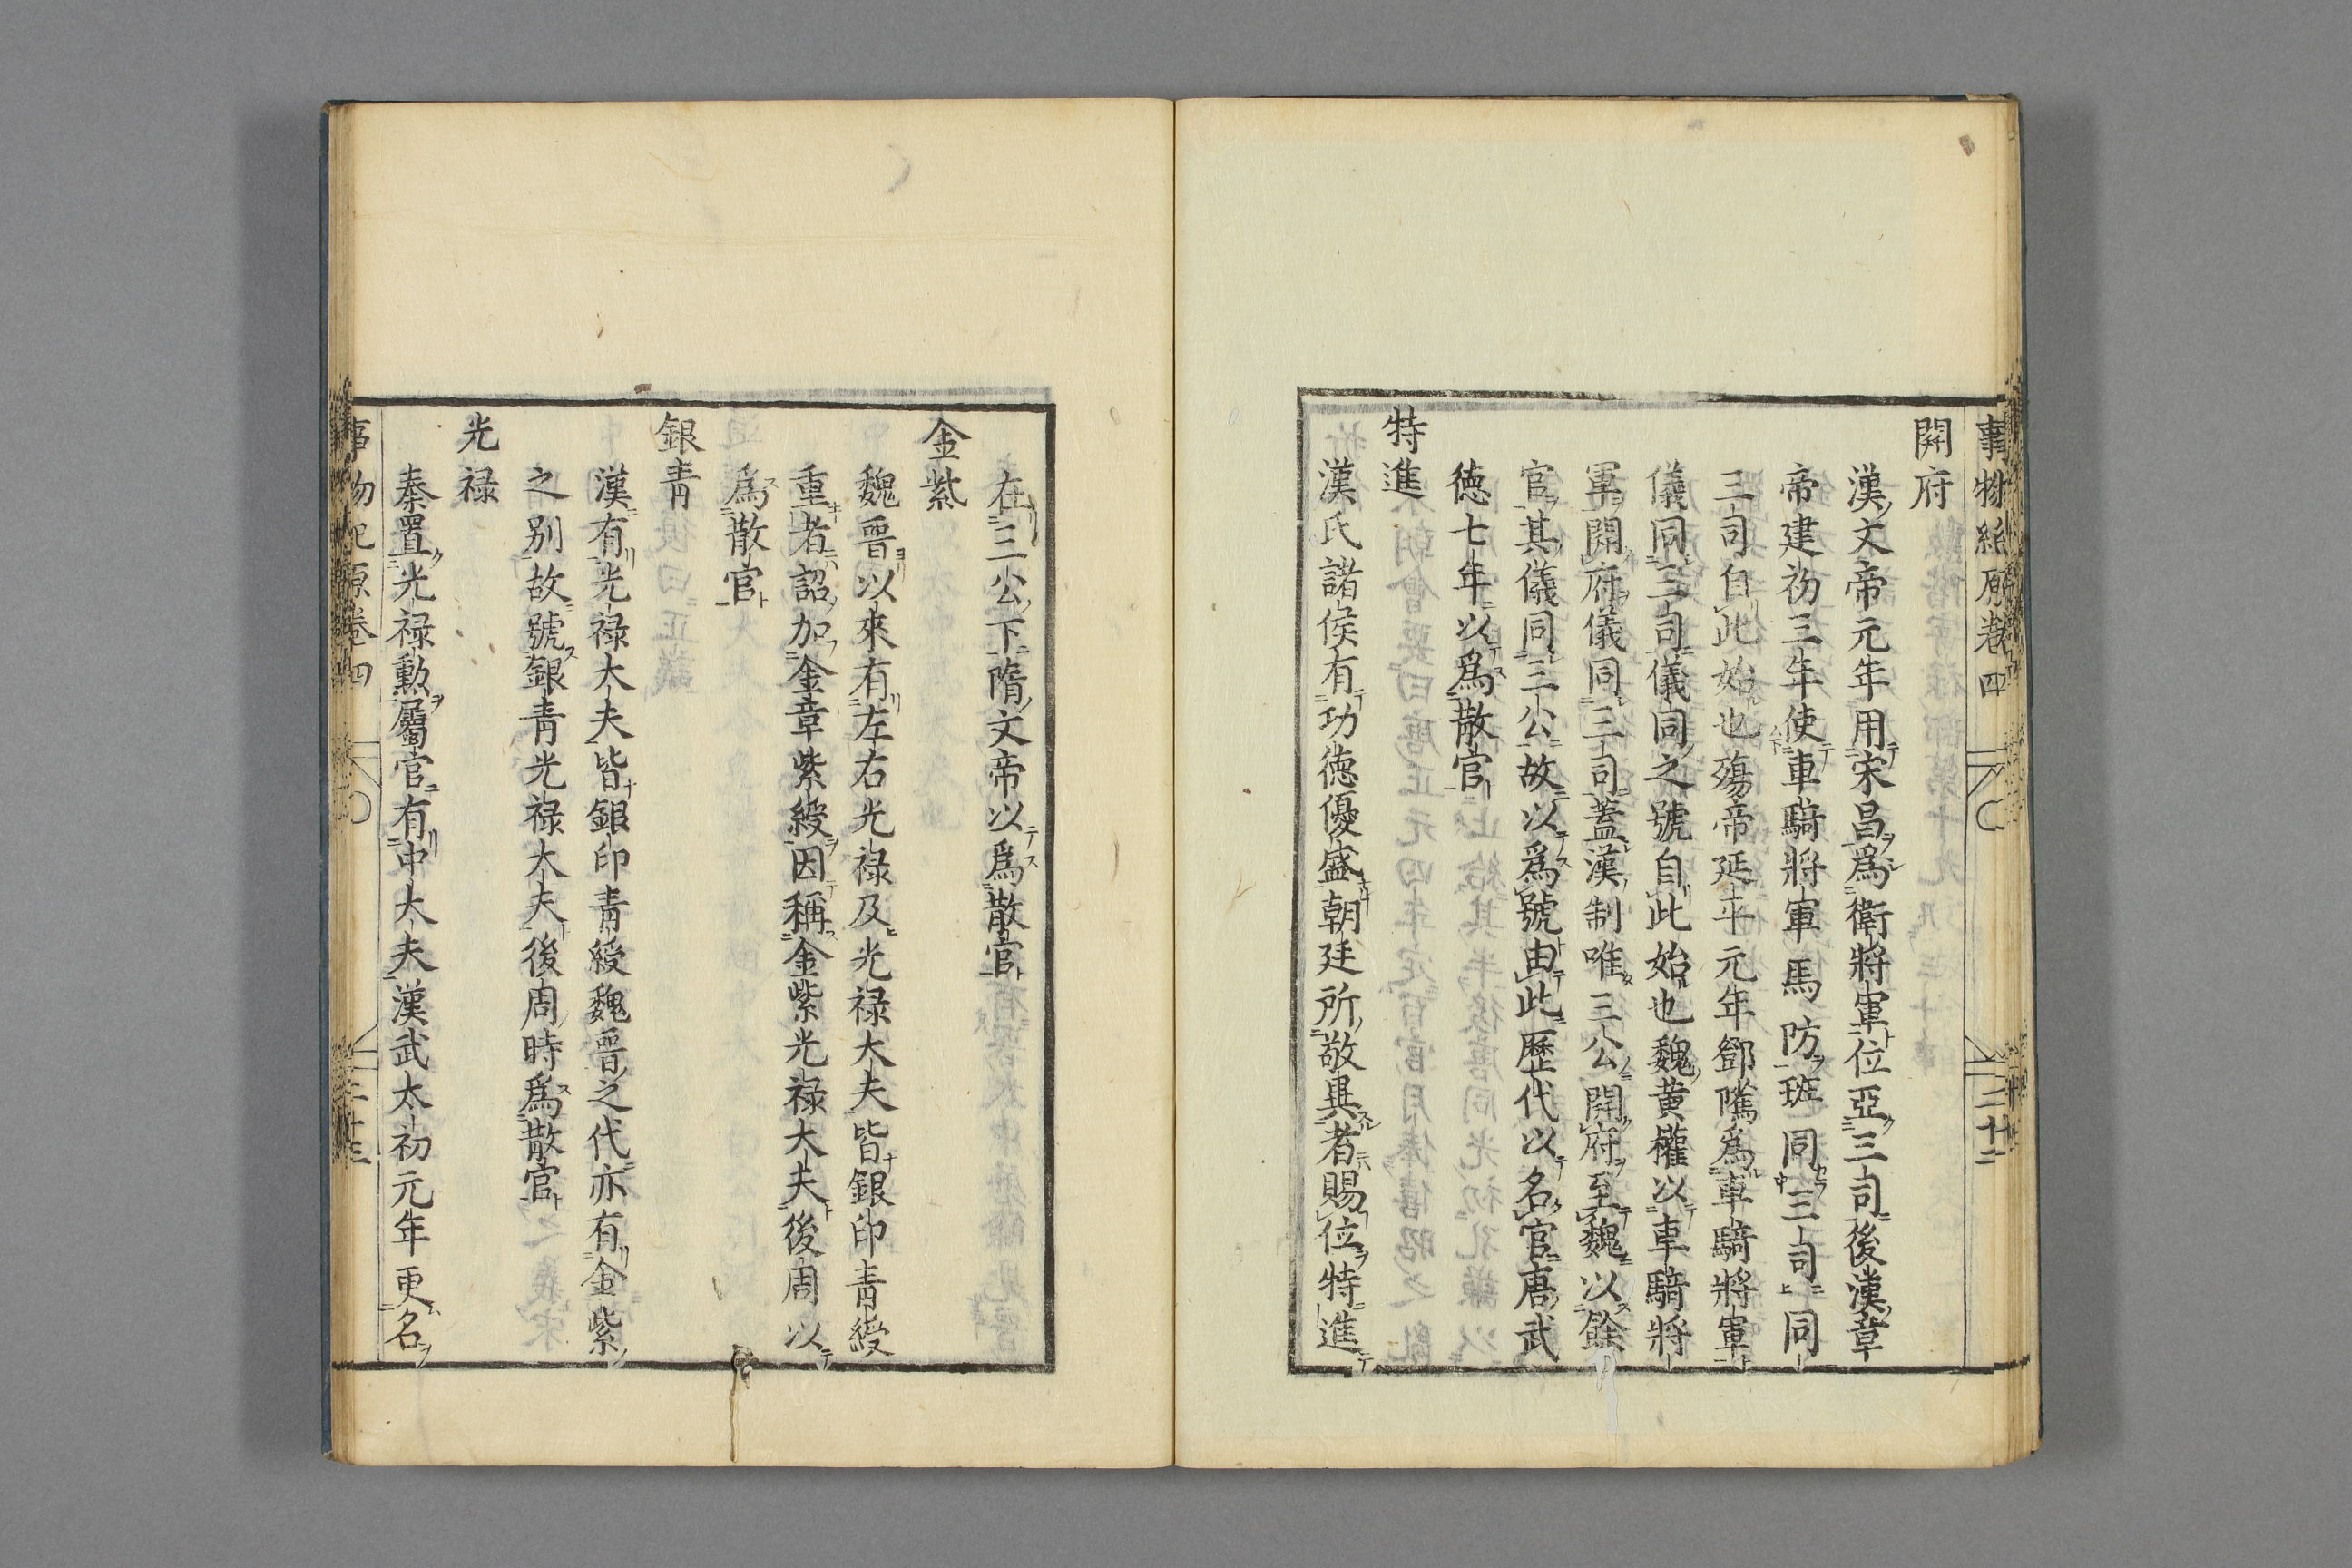 事物紀原卷四
二十二
開府
漢文帝元年用宋昌爲衛將軍位亞三司後漢章
帝建初三年使車騎將軍馬防班同三司同
三司自此始也殤帝延平元年鄧隲爲車騎將軍
儀同三司儀同之號自此始也魏黄權以車騎將
軍開府儀同三司蓋漢制唯三公開府至魏以餘
官其儀同三公故以爲號由此歷代以名官唐武
德七年以爲散官
特進
漢氏諸侯有功德優盛朝廷所敬異者賜位特進
在三公下隋文帝以爲散官
金紫
魏晉以來有左右光祿及光祿大夫皆銀印青綬
重者詔加金章紫綬因稱金紫光祿大夫後周以
爲散官
銀青
漢有光祿大夫皆銀印青綬魏晉之代亦有金紫
之別故號銀青光祿大夫後周時爲散官
光祿
秦置光祿勲屬官有中大夫漢武太初元年更名
事物紀原卷四
二十三